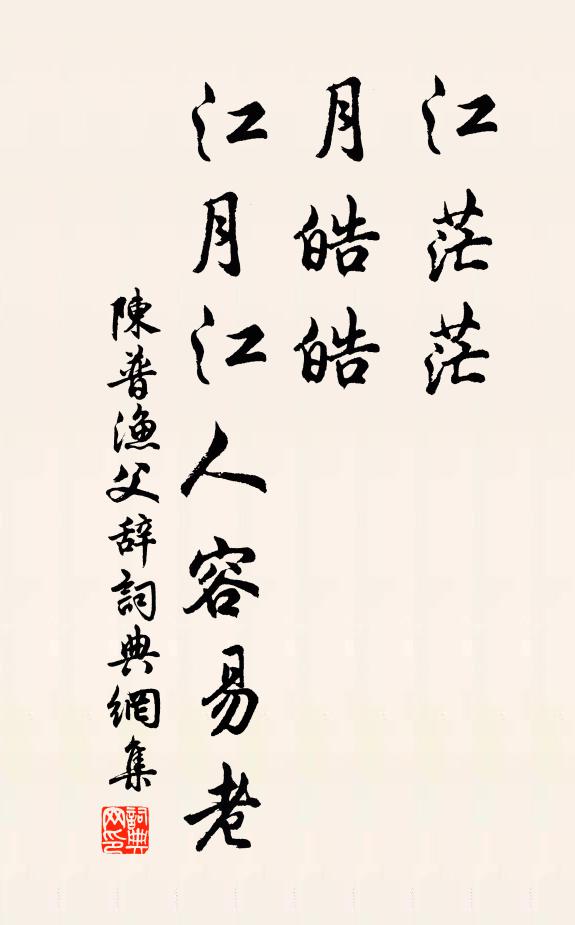 江茫茫
月皓皓
江月江人容易老
陳普漁父辞詞典網集
詞典網印